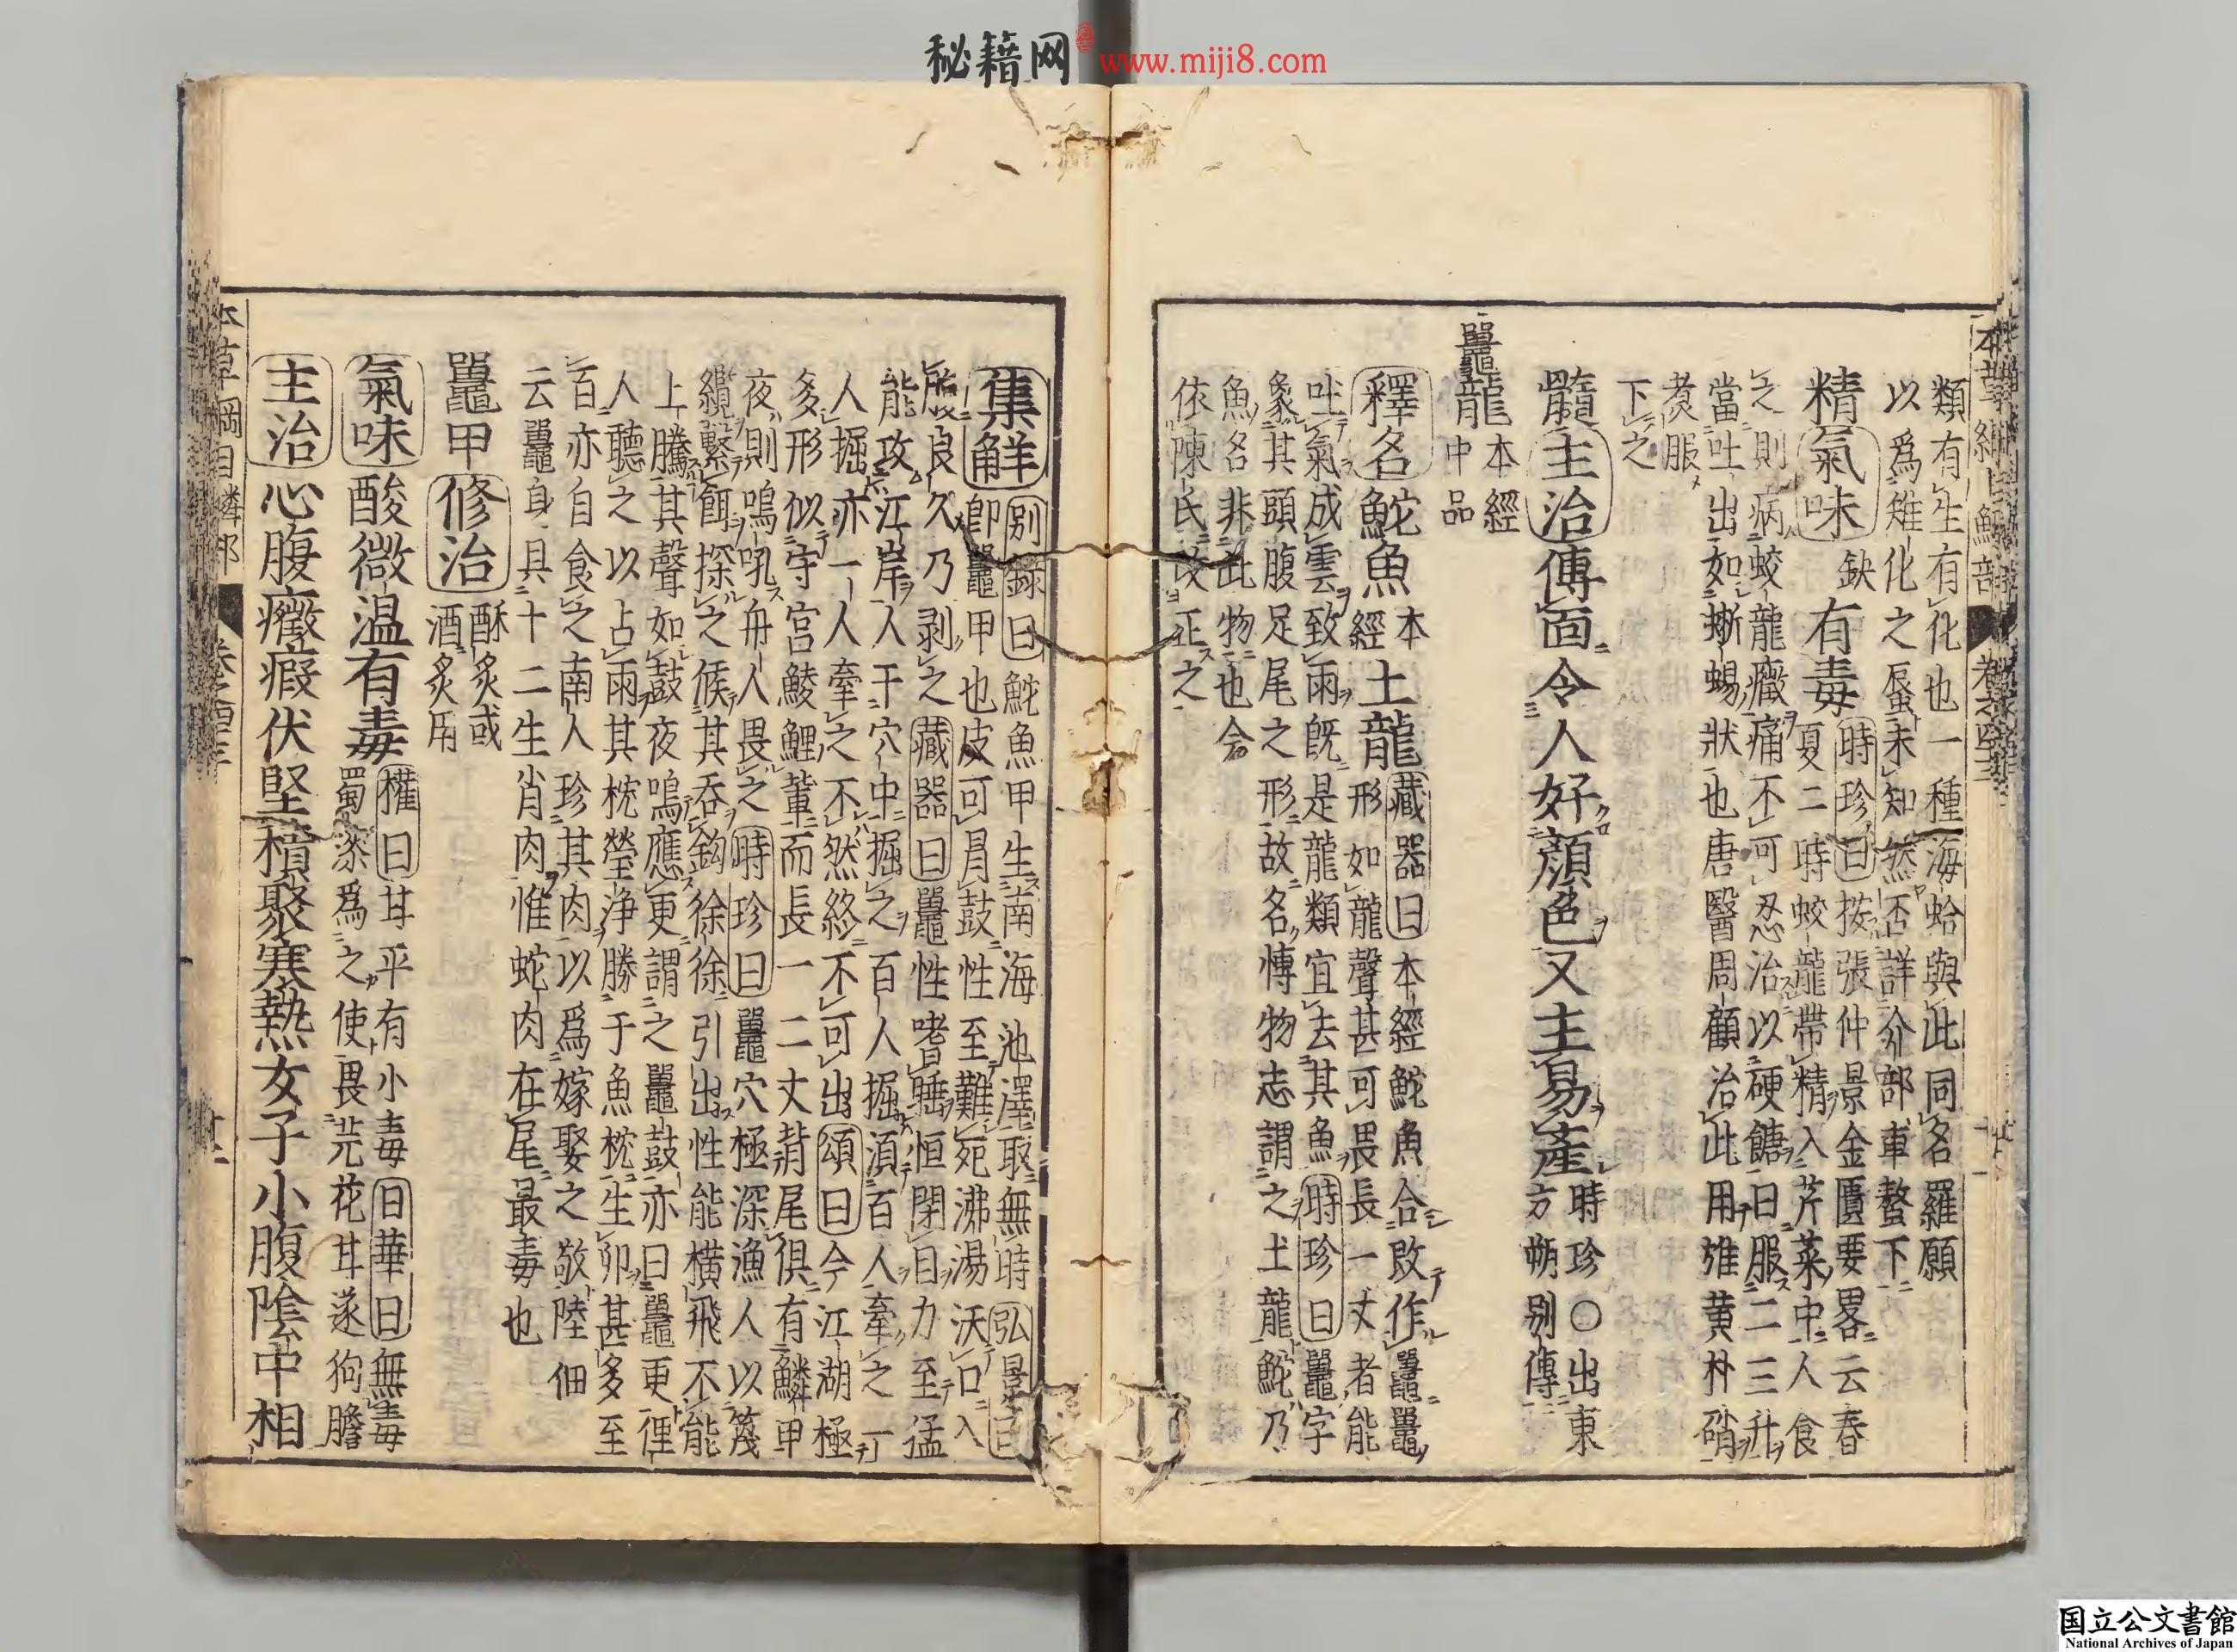 秘籍网 www.miji8.com
本草綱目鱗部 卷之四十三
類有生有化也一種海蛤與此同名羅願
以爲雉化之蜃未知然否詳介部車螯下
精氣味缺有毒時珍曰按張仲景金匱要畧云春
夏二時蛟龍帶精入芹菜中人食
之則病蛟龍癥痛不可忍治以硬餹日服二三升
當吐出如蜥蜴狀也唐醫周顧治此用雄黄朴硝
煮服
下之
髓主治傅面令人好顔色又主易產時珍○出東
方朔别傳
鼉龍本經
中品
釋名鮀魚本經土龍藏器曰本經鮀魚合改作鼉鼉
形如龍聲甚可畏長一丈者能
吐氣成雲致雨旣是龍類宜去其魚時珍曰鼉字
象其頭腹足尾之形故名愽物志謂之土龍鮀乃
魚名非此物也今
依陳氏改正之
集解别録曰鮀魚甲生南海池澤取無時弘景曰
卽鼉甲也皮可冐鼓性至難死沸湯沃口入
腹良久乃剥之藏器曰鼉性嗜睡恒閉目力至猛
能攻江岸人于穴中掘之百人掘須百人牽之一
人掘亦一人牽之不然終不可出頌曰今江湖極
多形似守宫鯪鯉輩而長一二丈背尾俱有鱗甲
夜則鳴吼舟人畏之時珍曰鼉穴極深漁人以篾
纜繫餌探之候其吞鈎徐徐引出性能横飛不能
上騰其聲如鼓夜鳴應更謂之鼉鼓亦曰鼉更俚
人聽之以占雨其枕瑩净勝于魚枕生卵甚多至
百亦自食之南人珍其肉以爲嫁娶之敬陸佃
云鼉身具十二生肖肉惟蛇肉在尾最毒也
鼉甲修治酥炙或
酒炙用
氣味酸微温有毒權曰甘平有小毒日華曰無毒
蜀漆爲之使畏芫花甘遂狗膽
主治心腹癥瘕伏堅積聚寒熱女子小腹隂中相
草綱目鱗部 卷之四十三
国立公文書館
National Archives of Japan